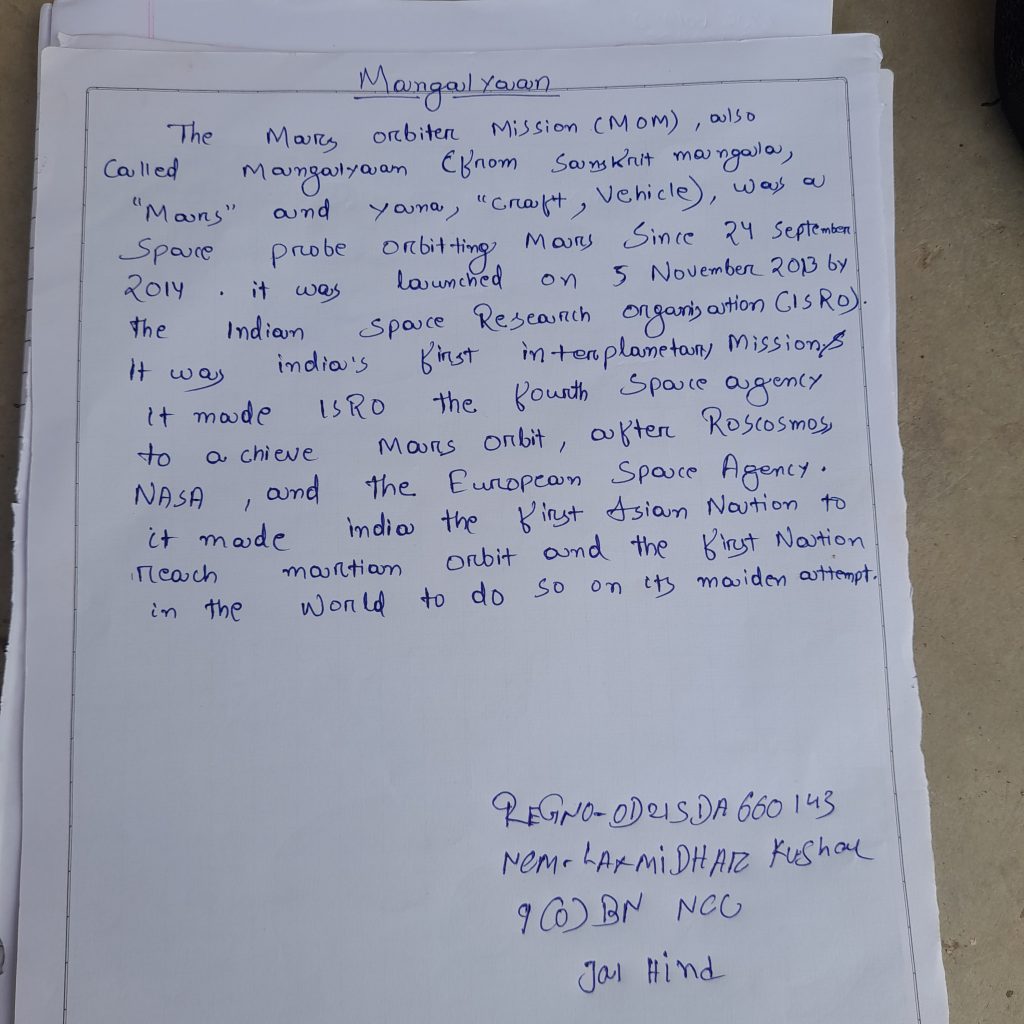 Mangalyaan
The Mars orbiter Mission (MOM), also
Called Mangalyaan (from Sanskrit mangala,
"Mars" and yana, "craft, Vehicle), was a
Space probe orbitting Mars Since 24 September
2014. it was launched on 5 November 2013 by
the Indian Space Research organisation (ISRO).
It was india's first interplanetary Missions
it made ISRO the fourth Space agency
to achieve Mars orbit, after Roscosmos,
NASA, and the European Space Agency.
it made india the first Asian Nation to
reach martian orbit and the first Nation
in the World to do so on its maiden attempt.
REGNO-OD21SDA660143
NEM- LAXMIDHAR
9(O) BN NCC
Jai Hind